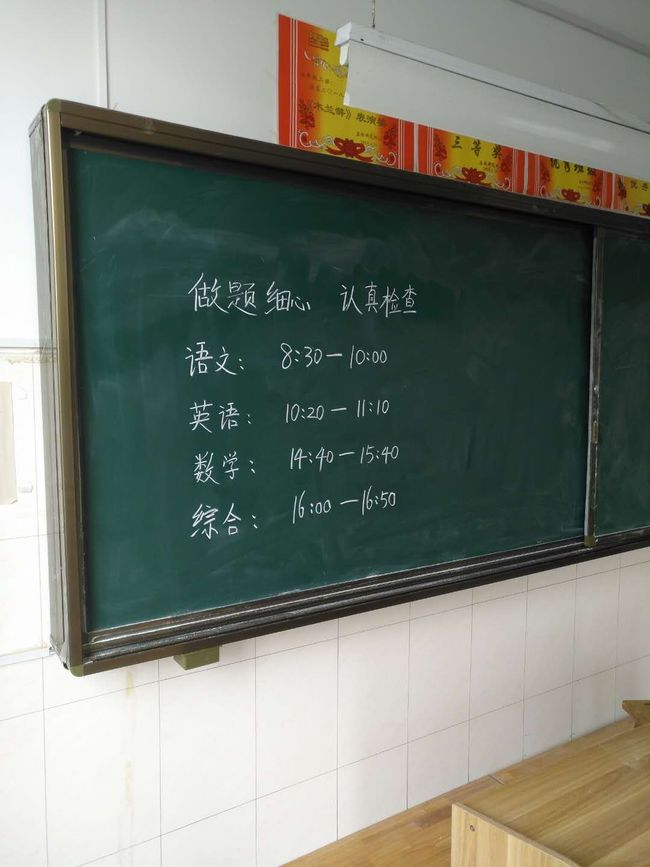 《木兰辞》表演奖
三等奖
优秀班级
优秀
做题细心 认真检查
语文： 8:30—10:00
英语： 10:20—11:10
数学： 14:40—15:40
综合： 16:00—16:50